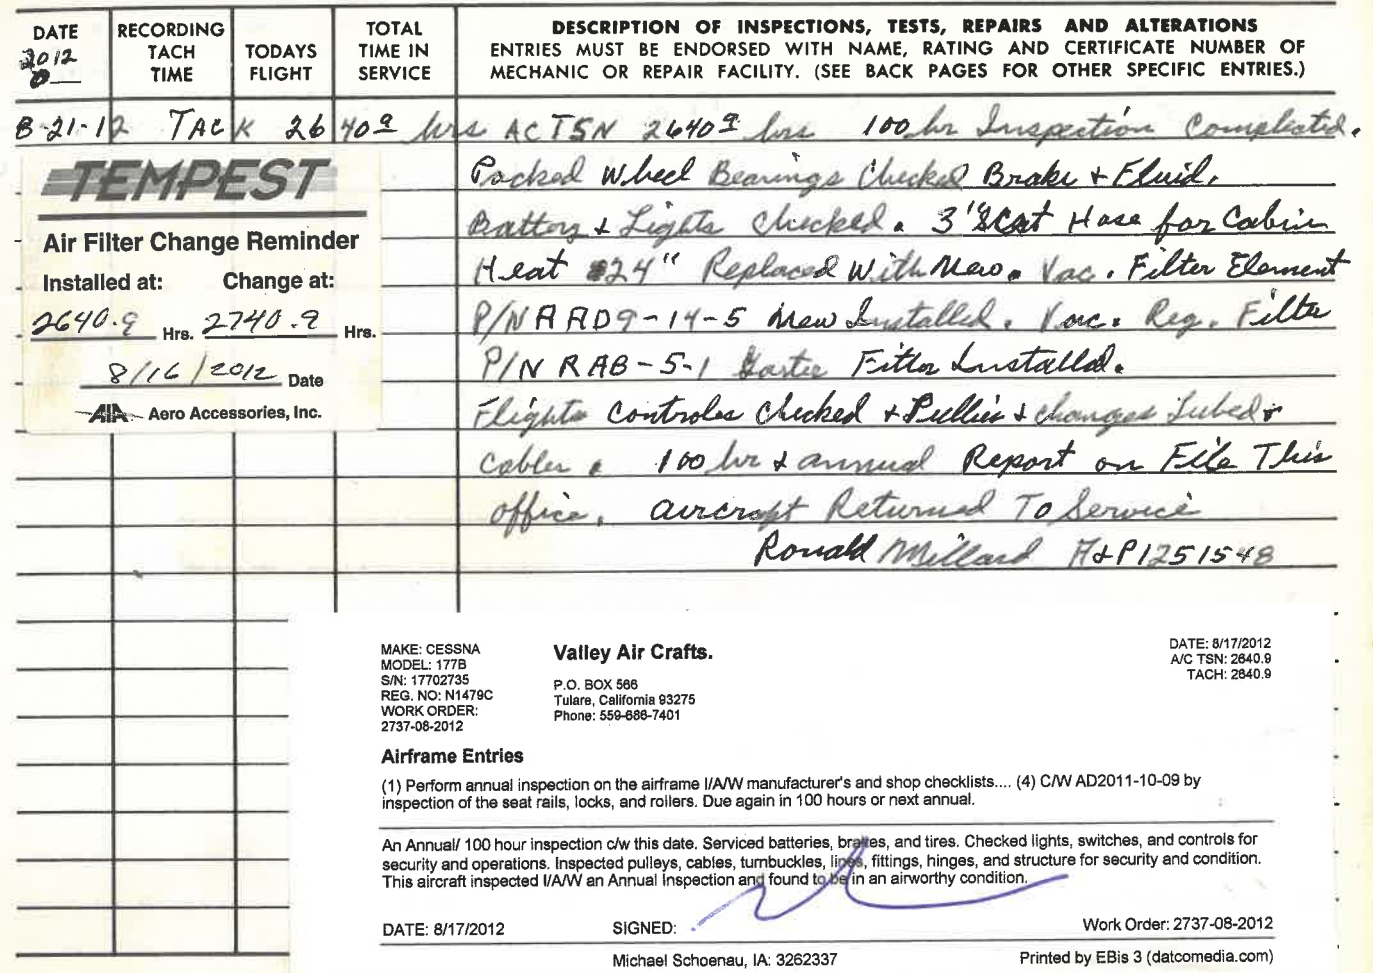 DATE
2012
RECORDING
TACH
TIME
TODAYS
FLIGHT
TOTAL
TIME IN
SERVICE
DESCRIPTION OF INSPECTIONS, TESTS, REPAIRS AND ALTERATIONS
ENTRIES MUST BE ENDORSED WITH NAME, RATING AND CERTIFICATE NUMBER OF
MECHANIC OR REPAIR FACILITY. (SEE BACK PAGES FOR OTHER SPECIFIC ENTRIES.)
8-21-12 TACK 2640 9 hrs ACTSN 2640 9 hrs 100 hr Inspection Completed.
Packed Wheel Bearings Checked Brake + Fluid.
Battery + Lights Checked. 3" Scat Hose for Cabin
Heat 24" Replaced With New. Vac. Filter Element
P/N AAD9-14-5 New Installed. Vac. Reg. Filter
P/N RAB-5-1 Filter Installed.
Flights Controles Checked + Pullies + Lubed +
Cables. 100 hr + annual Report on File This
office. aircraft Returned To Service
Ronald Millard A+P1251548
TEMPEST
Air Filter Change Reminder
Installed at: Change at:
2640.9 Hrs. 2740.9 Hrs.
8/16/2012 Date
AIA Aero Accessories, Inc.
MAKE: CESSNA
MODEL: 177B
S/N: 17702735
REG. NO: N1479C
WORK ORDER:
2737-08-2012
Valley Air Crafts.
P.O. BOX 566
Tulare, California 93275
Phone: 559-686-7401
DATE: 8/17/2012
A/C TSN: 2640.9
TACH: 2640.9
Airframe Entries
(1) Perform annual inspection on the airframe I/A/W manufacturer's and shop checklists.... (4) C/W AD2011-10-09 by
inspection of the seat rails, locks, and rollers. Due again in 100 hours or next annual.
An Annual/ 100 hour inspection c/w this date. Serviced batteries, brakes, and tires. Checked lights, switches, and controls for
security and operations. Inspected pulleys, cables, turnbuckles, lines, fittings, hinges, and structure for security and condition.
This aircraft inspected I/A/W an Annual Inspection and found to be in an airworthy condition.
DATE: 8/17/2012 SIGNED: Work Order: 2737-08-2012
Michael Schoenau, IA: 3262337 Printed by EBis 3 (datcomedia.com)